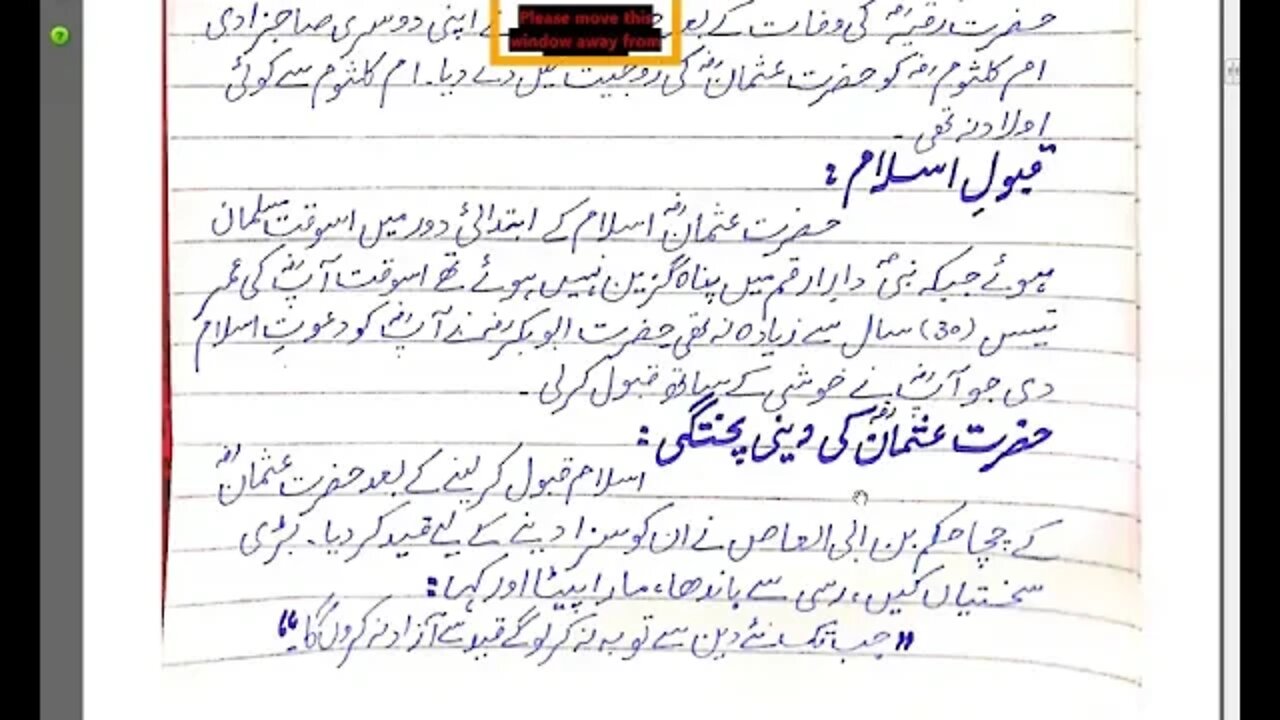 حضرت رقیہؓ کی وفات کے بعد نے اپنی دوسری صاحبزادی
Please move this
window away from
ام کلثومؓ کو حضرت عثمانؓ کی زوجیت میں دے دیا۔ ام کلثوم سے کوئی
اولاد نہ تھی۔
قبولِ اسلام:
حضرت عثمانؓ اسلام کے ابتدائی دور میں اسوقت مسلمان
ہوئے جبکہ نبیؐ دارِ ارقم میں پناہ گزین نہیں ہوئے تھے اسوقت آپؓ کی عمر
تیس (30) سال سے زیادہ نہ تھی حضرت ابوبکرؓ نے آپؓ کو دعوتِ اسلام
دی جو آپؓ نے خوشی کے ساتھ قبول کرلی۔
حضرت عثمانؓ کی دینی پختگی:
اسلام قبول کر لینے کے بعد حضرت عثمانؓ
کے چچا حکم بن ابی العاص نے ان کو سزا دینے کے لیے قید کر دیا۔ بڑی
سختیاں کیں، رسی سے باندھا، مارا پیٹا اور کہا:
"جب تک نئے دین سے توبہ نہ کرلو گے قید سے آزاد نہ کروں گا۔"